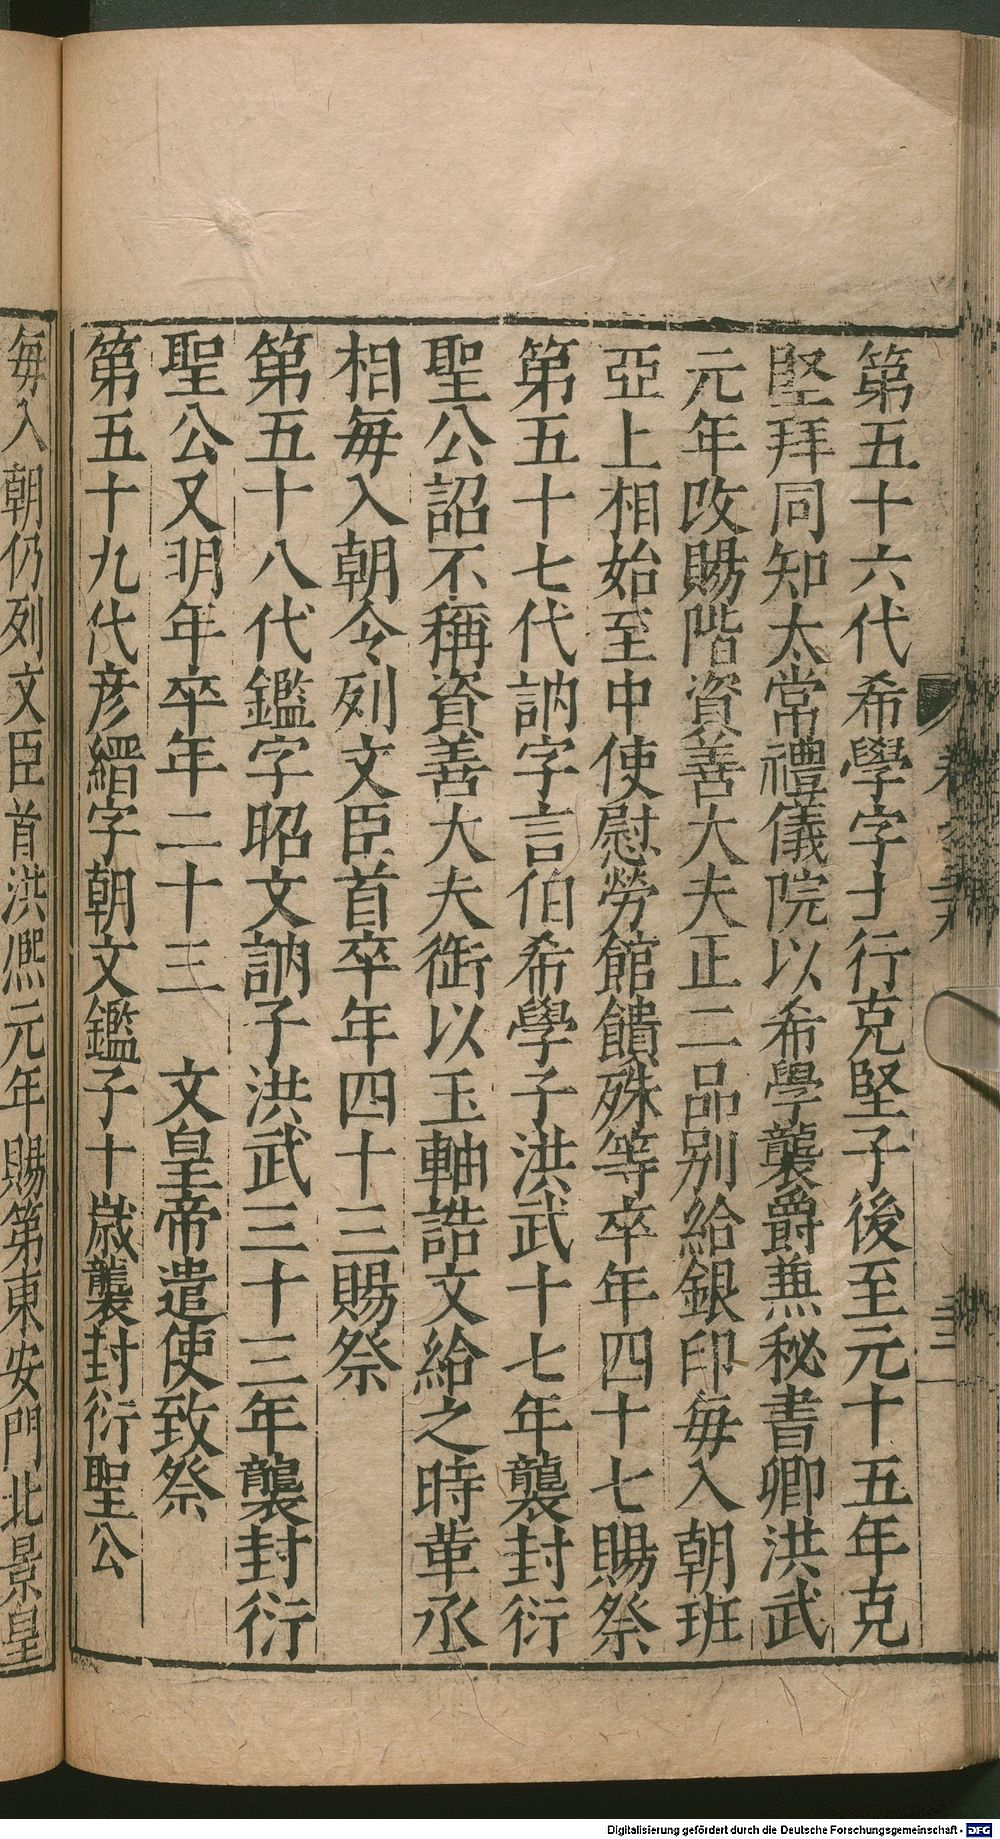 第五十六代希學字士行克堅子後至元十五年克
堅拜同知太常禮儀院以希學襲爵兼秘書卿洪武
元年改賜階資善大夫正二品別給銀印每入朝班
亞上相始至中使慰勞館饋殊等卒年四十七賜祭
第五十七代訥字言伯希學子洪武十七年襲封衍
聖公詔不稱資善大夫衘以玉軸誥文給之時革丞
相每入朝令列文臣首卒年四十三賜祭
第五十八代鑑字昭文訥子洪武三十三年襲封衍
聖公又明年卒年二十三　文皇帝遣使致祭
第五十九代彥縉字朝文鑑子十歲襲封衍聖公
每入朝仍列文臣首洪熙元年賜第東安門北景皇
Digitalisierung gefördert durch die Deutsche Forschungsgemeinschaft - DFG